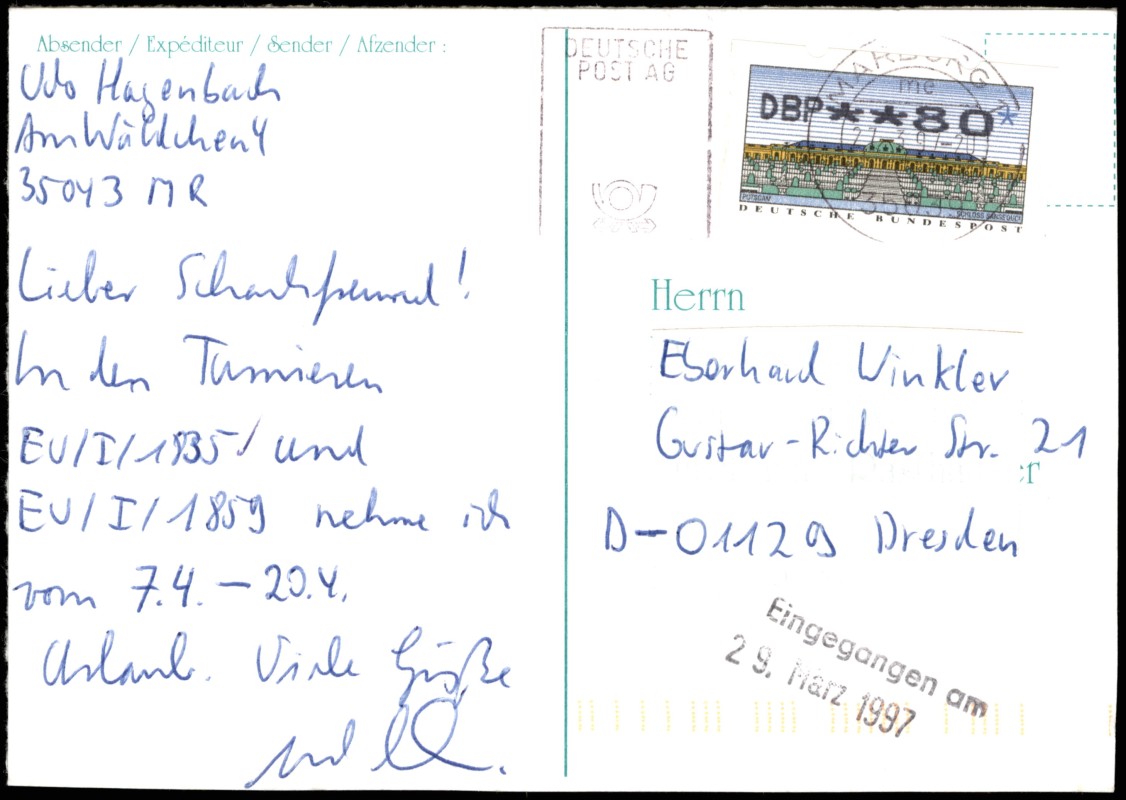 Absender / Expéditeur / Sender / Afzender :
Udo Hagenbach
Am Wäldchen 4
35043 MR
Lieber Schachfreund!
In den Turnieren
EU/I/1835/ und
EU/I/1859 nehme ich
vom 7.4. – 20.4.
Urlaub. Viele Grüße
DEUTSCHE
POST AG
MARBURG 1
mc
27.3.97-20
DBP**80*
POTSDAM
SCHLOSS SANSSOUCI
DEUTSCHE BUNDESPOST
Herrn
Eberhard Winkler
Gustav-Richter Str. 21
er
D-01129 Dresden
Eingegangen am
29. März 1997